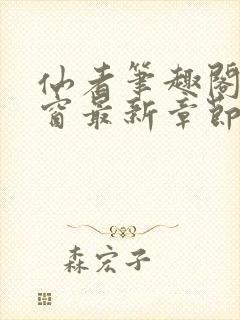 仙者笔趣阁
窗最新章节
森宏子